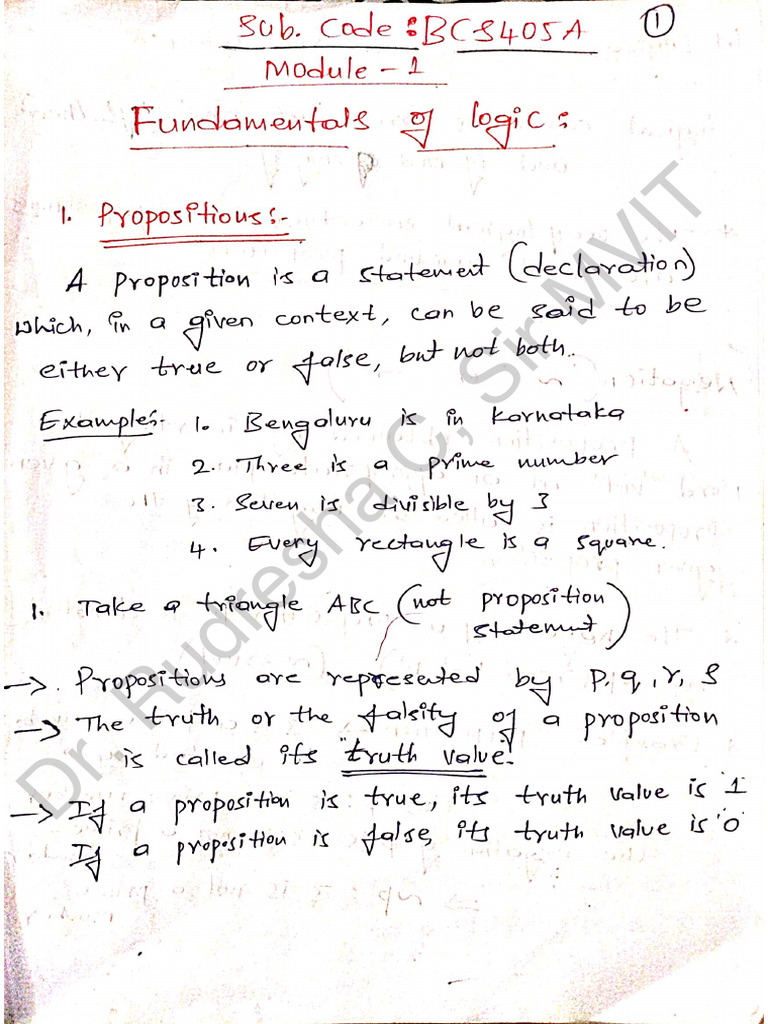 Sub. Code : BCS405A
1
Module - 1
Fundamentals of logic :
1. Propositions :-
A proposition is a statement (declaration)
which, in a given context, can be said to be
either true or false, but not both.
Examples:- 1. Bengaluru is in Karnataka
2. Three is a prime number
3. Seven is divisible by 3
4. Every rectangle is a square.
1. Take a triangle ABC (not proposition
statement)
-> Propositions are represented by p, q, r, s
-> The truth or the falsity of a proposition
is called its "truth value".
-> If a proposition is true, its truth value is '1'
If a proposition is false, its truth value is '0'
Dr. Rudresha C, Sir MVIT